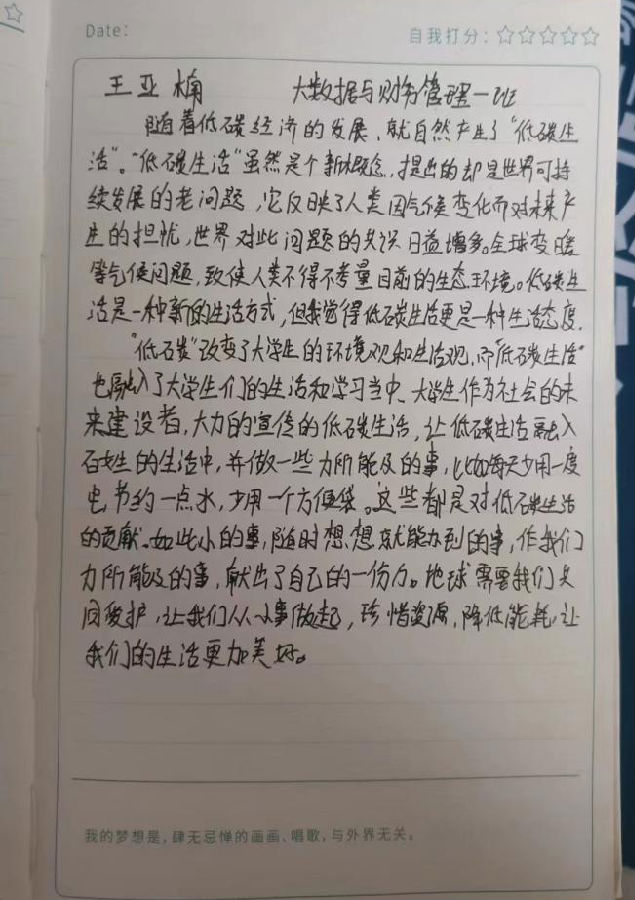 Date:
自我打分：☆☆☆☆☆
王亚楠 大数据与财务管理一班
随着低碳经济的发展，就自然产生了“低碳生
活”。“低碳生活”虽然是个新概念，提出的却是世界可持
续发展的老问题，它反映了人类因气候变化而对未来产
生的担忧，世界对此问题的共识日益增多。全球变暖
等气候问题，致使人类不得不考量目前的生态环境。低碳生
活是一种新的生活方式，但我觉得低碳生活更是一种生活态度。
“低碳”改变了大学生的环境观和生活观，而“低碳生活”
也融入了大学生们的生活和学习当中、大学生作为社会的未
来建设者，大力的宣传的低碳生活，让低碳生活融入
生的生活中，并做一些力所能及的事，比如每天少用一度
电，节约一点水，少用一个方便袋。这些都是对低碳生活
的贡献。如此小的事，随时想想就能办到的事，作我们
力所能及的事，献出了自己的一份力。地球需要我们共
同爱护，让我们从小事做起，珍惜资源，降低能耗，让
我们的生活更加美好。
我的梦想是，肆无忌惮的画画、唱歌，与外界无关。